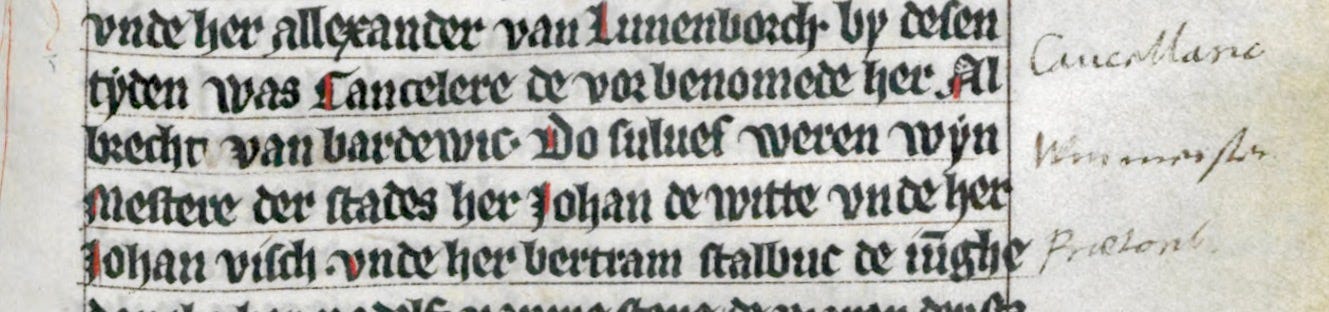 vnde her allexander van Lunenborch· by desen
tyden was Cancelere de vorbenomede her Al
brecht van bardewic· Do sulues weren wyn
mestere der stades her Johan de witte vnde her
Johan visch .vnde her bertram stalbuc de iu̅ghe
Cancellarie
Winmeister